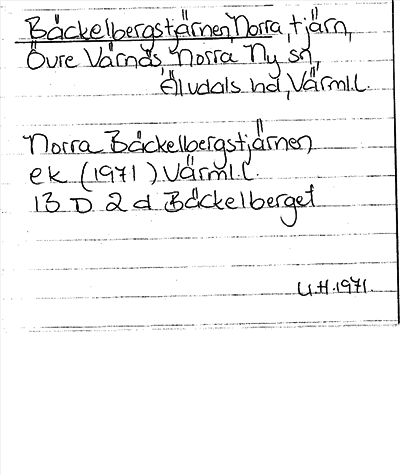 Bäckelbergstjärnen, Norra, tjärn,
Övre Värnäs Norra Ny sn,
Älvdals hd, Värml.l.
Norra Bäckelbergstjärnen
ek (1971) Värml.l.
13 D 2 d Bäckelberget
U.H. 1971.